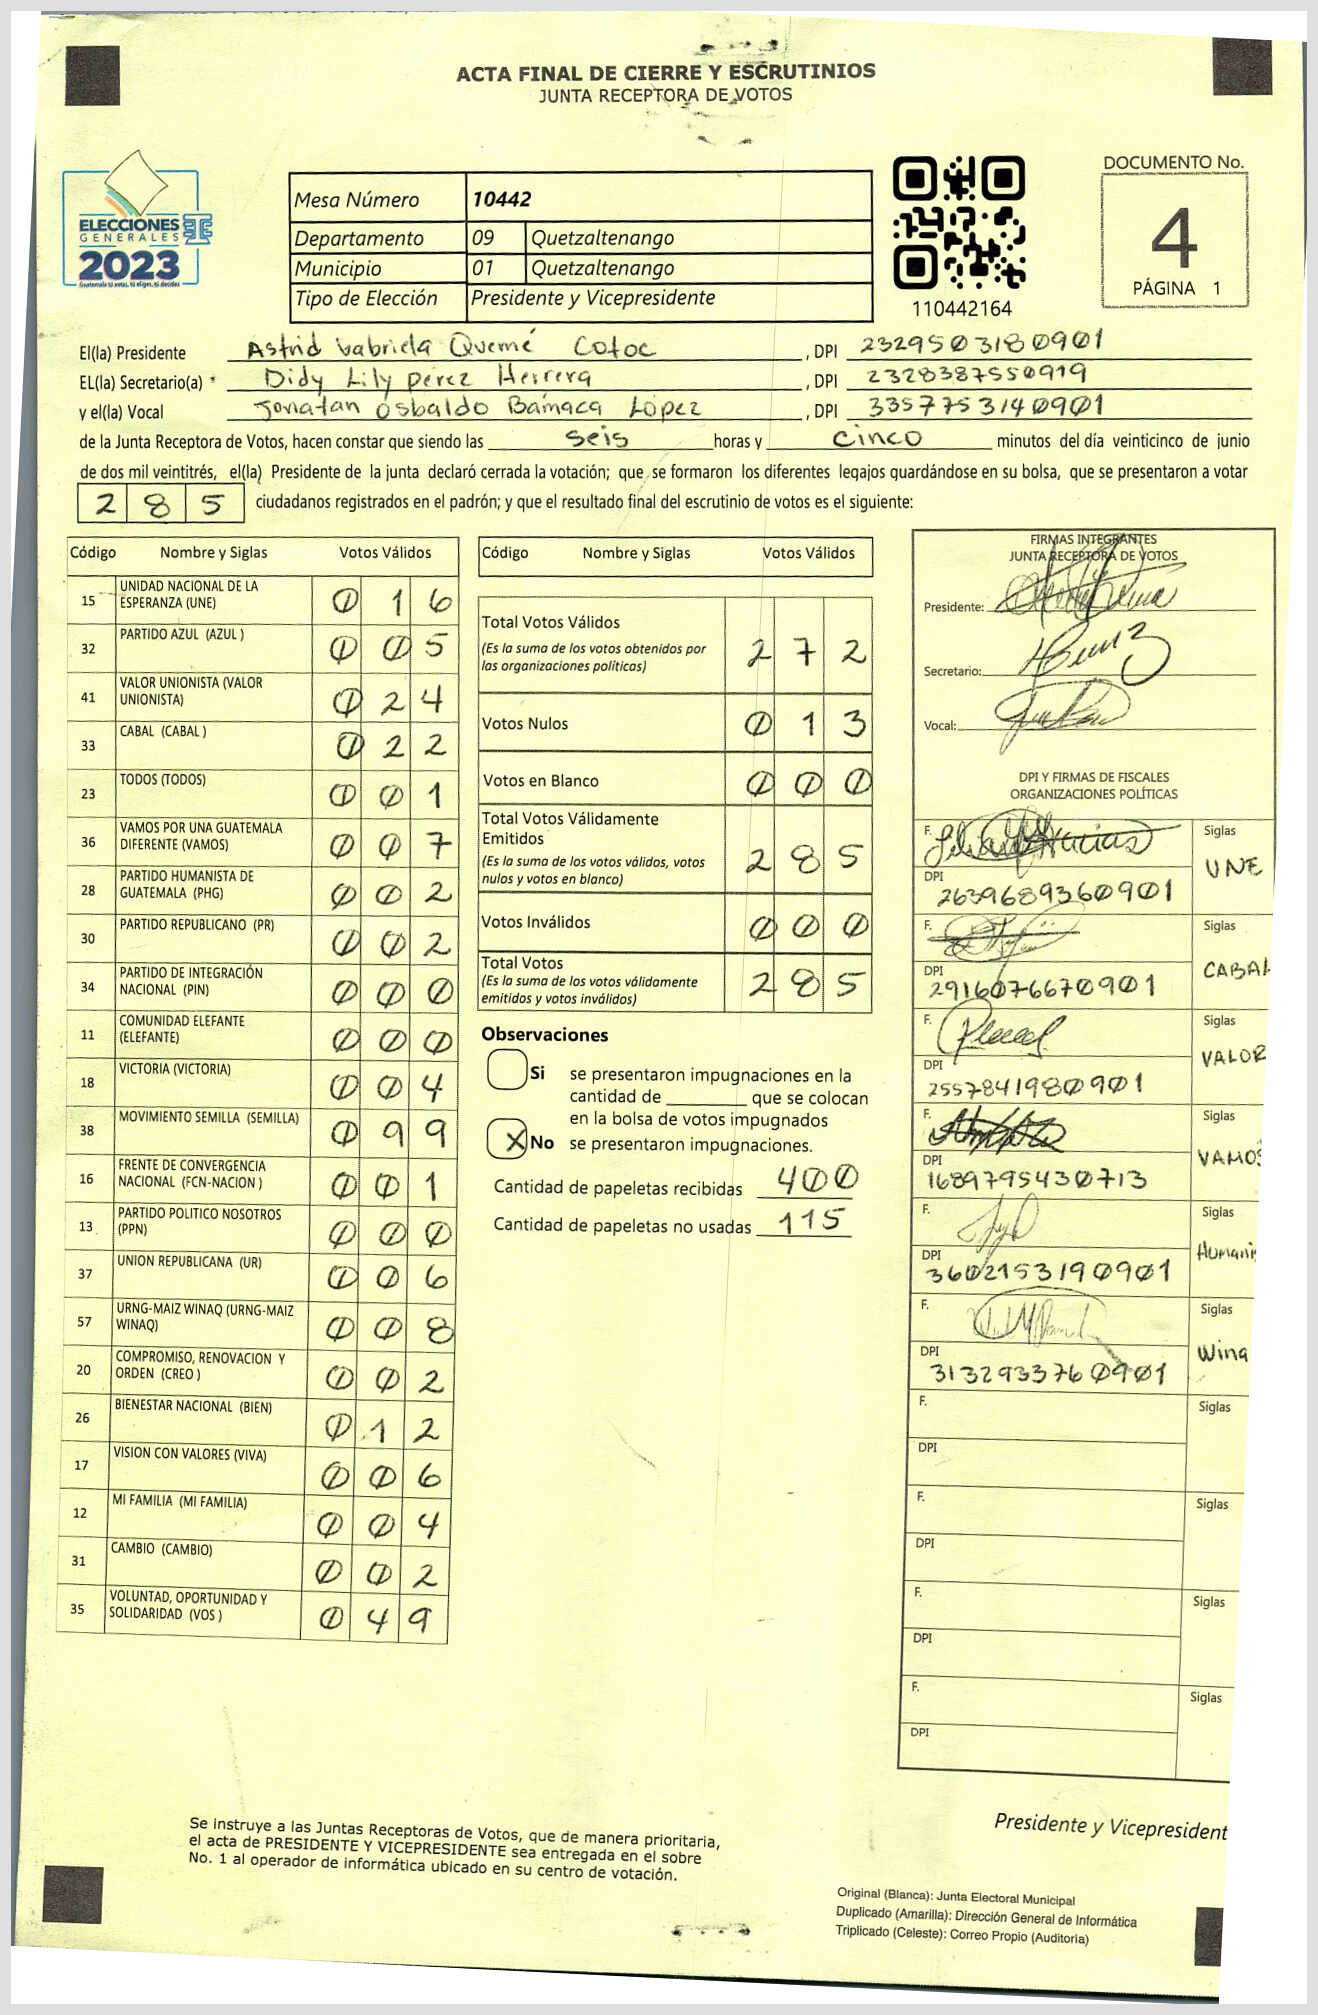 ACTA FINAL DE CIERRE Y ESCRUTINIOS
JUNTA RECEPTORA DE VOTOS
ELECCIONES
GENERALES
2023
Guatemala tú votas, tú eliges, tú decides
Mesa Número 10442
Departamento 09 Quetzaltenango
Municipio 01 Quetzaltenango
Tipo de Elección Presidente y Vicepresidente
110442164
DOCUMENTO No.
4
PÁGINA 1
El(la) Presidente Astrid Gabriela Quemé Cotoc, DPI 2329503180901
EL(la) Secretario(a) Didy Lily perez Herrera, DPI 2328387550919
y el(la) Vocal Jonatan Osbaldo Bámaca López, DPI 3357753140901
de la Junta Receptora de Votos, hacen constar que siendo las seis horas y cinco minutos del día veinticinco de junio
de dos mil veintitrés, el(la) Presidente de la junta declaró cerrada la votación; que se formaron los diferentes legajos guardándose en su bolsa, que se presentaron a votar
285 ciudadanos registrados en el padrón; y que el resultado final del escrutinio de votos es el siguiente:
Código Nombre y Siglas Votos Válidos
15 UNIDAD NACIONAL DE LA ESPERANZA (UNE) 016
32 PARTIDO AZUL (AZUL ) 005
41 VALOR UNIONISTA (VALOR UNIONISTA) 024
33 CABAL (CABAL ) 022
23 TODOS (TODOS) 001
36 VAMOS POR UNA GUATEMALA DIFERENTE (VAMOS) 007
28 PARTIDO HUMANISTA DE GUATEMALA (PHG) 002
30 PARTIDO REPUBLICANO (PR) 002
34 PARTIDO DE INTEGRACIÓN NACIONAL (PIN) 000
11 COMUNIDAD ELEFANTE (ELEFANTE) 000
18 VICTORIA (VICTORIA) 004
38 MOVIMIENTO SEMILLA (SEMILLA) 099
16 FRENTE DE CONVERGENCIA NACIONAL (FCN-NACION ) 001
13 PARTIDO POLITICO NOSOTROS (PPN) 000
37 UNION REPUBLICANA (UR) 006
57 URNG-MAIZ WINAQ (URNG-MAIZ WINAQ) 008
20 COMPROMISO, RENOVACION Y ORDEN (CREO ) 002
26 BIENESTAR NACIONAL (BIEN) 012
17 VISION CON VALORES (VIVA) 006
12 MI FAMILIA (MI FAMILIA) 004
31 CAMBIO (CAMBIO) 002
35 VOLUNTAD, OPORTUNIDAD Y SOLIDARIDAD (VOS ) 049
Código Nombre y Siglas Votos Válidos
Total Votos Válidos 272
(Es la suma de los votos obtenidos por
las organizaciones políticas)
Votos Nulos 013
Votos en Blanco 000
Total Votos Válidamente
Emitidos 285
(Es la suma de los votos válidos, votos
nulos y votos en blanco)
Votos Inválidos 000
Total Votos 285
(Es la suma de los votos válidamente
emitidos y votos inválidos)
Observaciones
Si se presentaron impugnaciones en la
cantidad de ________ que se colocan
en la bolsa de votos impugnados
X No se presentaron impugnaciones.
Cantidad de papeletas recibidas 400
Cantidad de papeletas no usadas 115
FIRMAS INTEGRANTES
JUNTA RECEPTORA DE VOTOS
Presidente:
Secretario:
Vocal:
DPI Y FIRMAS DE FISCALES
ORGANIZACIONES POLÍTICAS
F. Siglas UNE
DPI 2639689360901
F. Siglas CABAL
DPI 2916076670901
F. Siglas VALOR
DPI 2557841980901
F. Siglas VAMOS
DPI 1689795430713
F. Siglas Humanis
DPI 3602153190901
F. Siglas Wina
DPI 3132933760901
F. Siglas
DPI
F. Siglas
DPI
F. Siglas
DPI
F. Siglas
DPI
Se instruye a las Juntas Receptoras de Votos, que de manera prioritaria,
el acta de PRESIDENTE Y VICEPRESIDENTE sea entregada en el sobre
No. 1 al operador de informática ubicado en su centro de votación.
Presidente y Vicepresident
Original (Blanca): Junta Electoral Municipal
Duplicado (Amarilla): Dirección General de Informática
Triplicado (Celeste): Correo Propio (Auditoría)